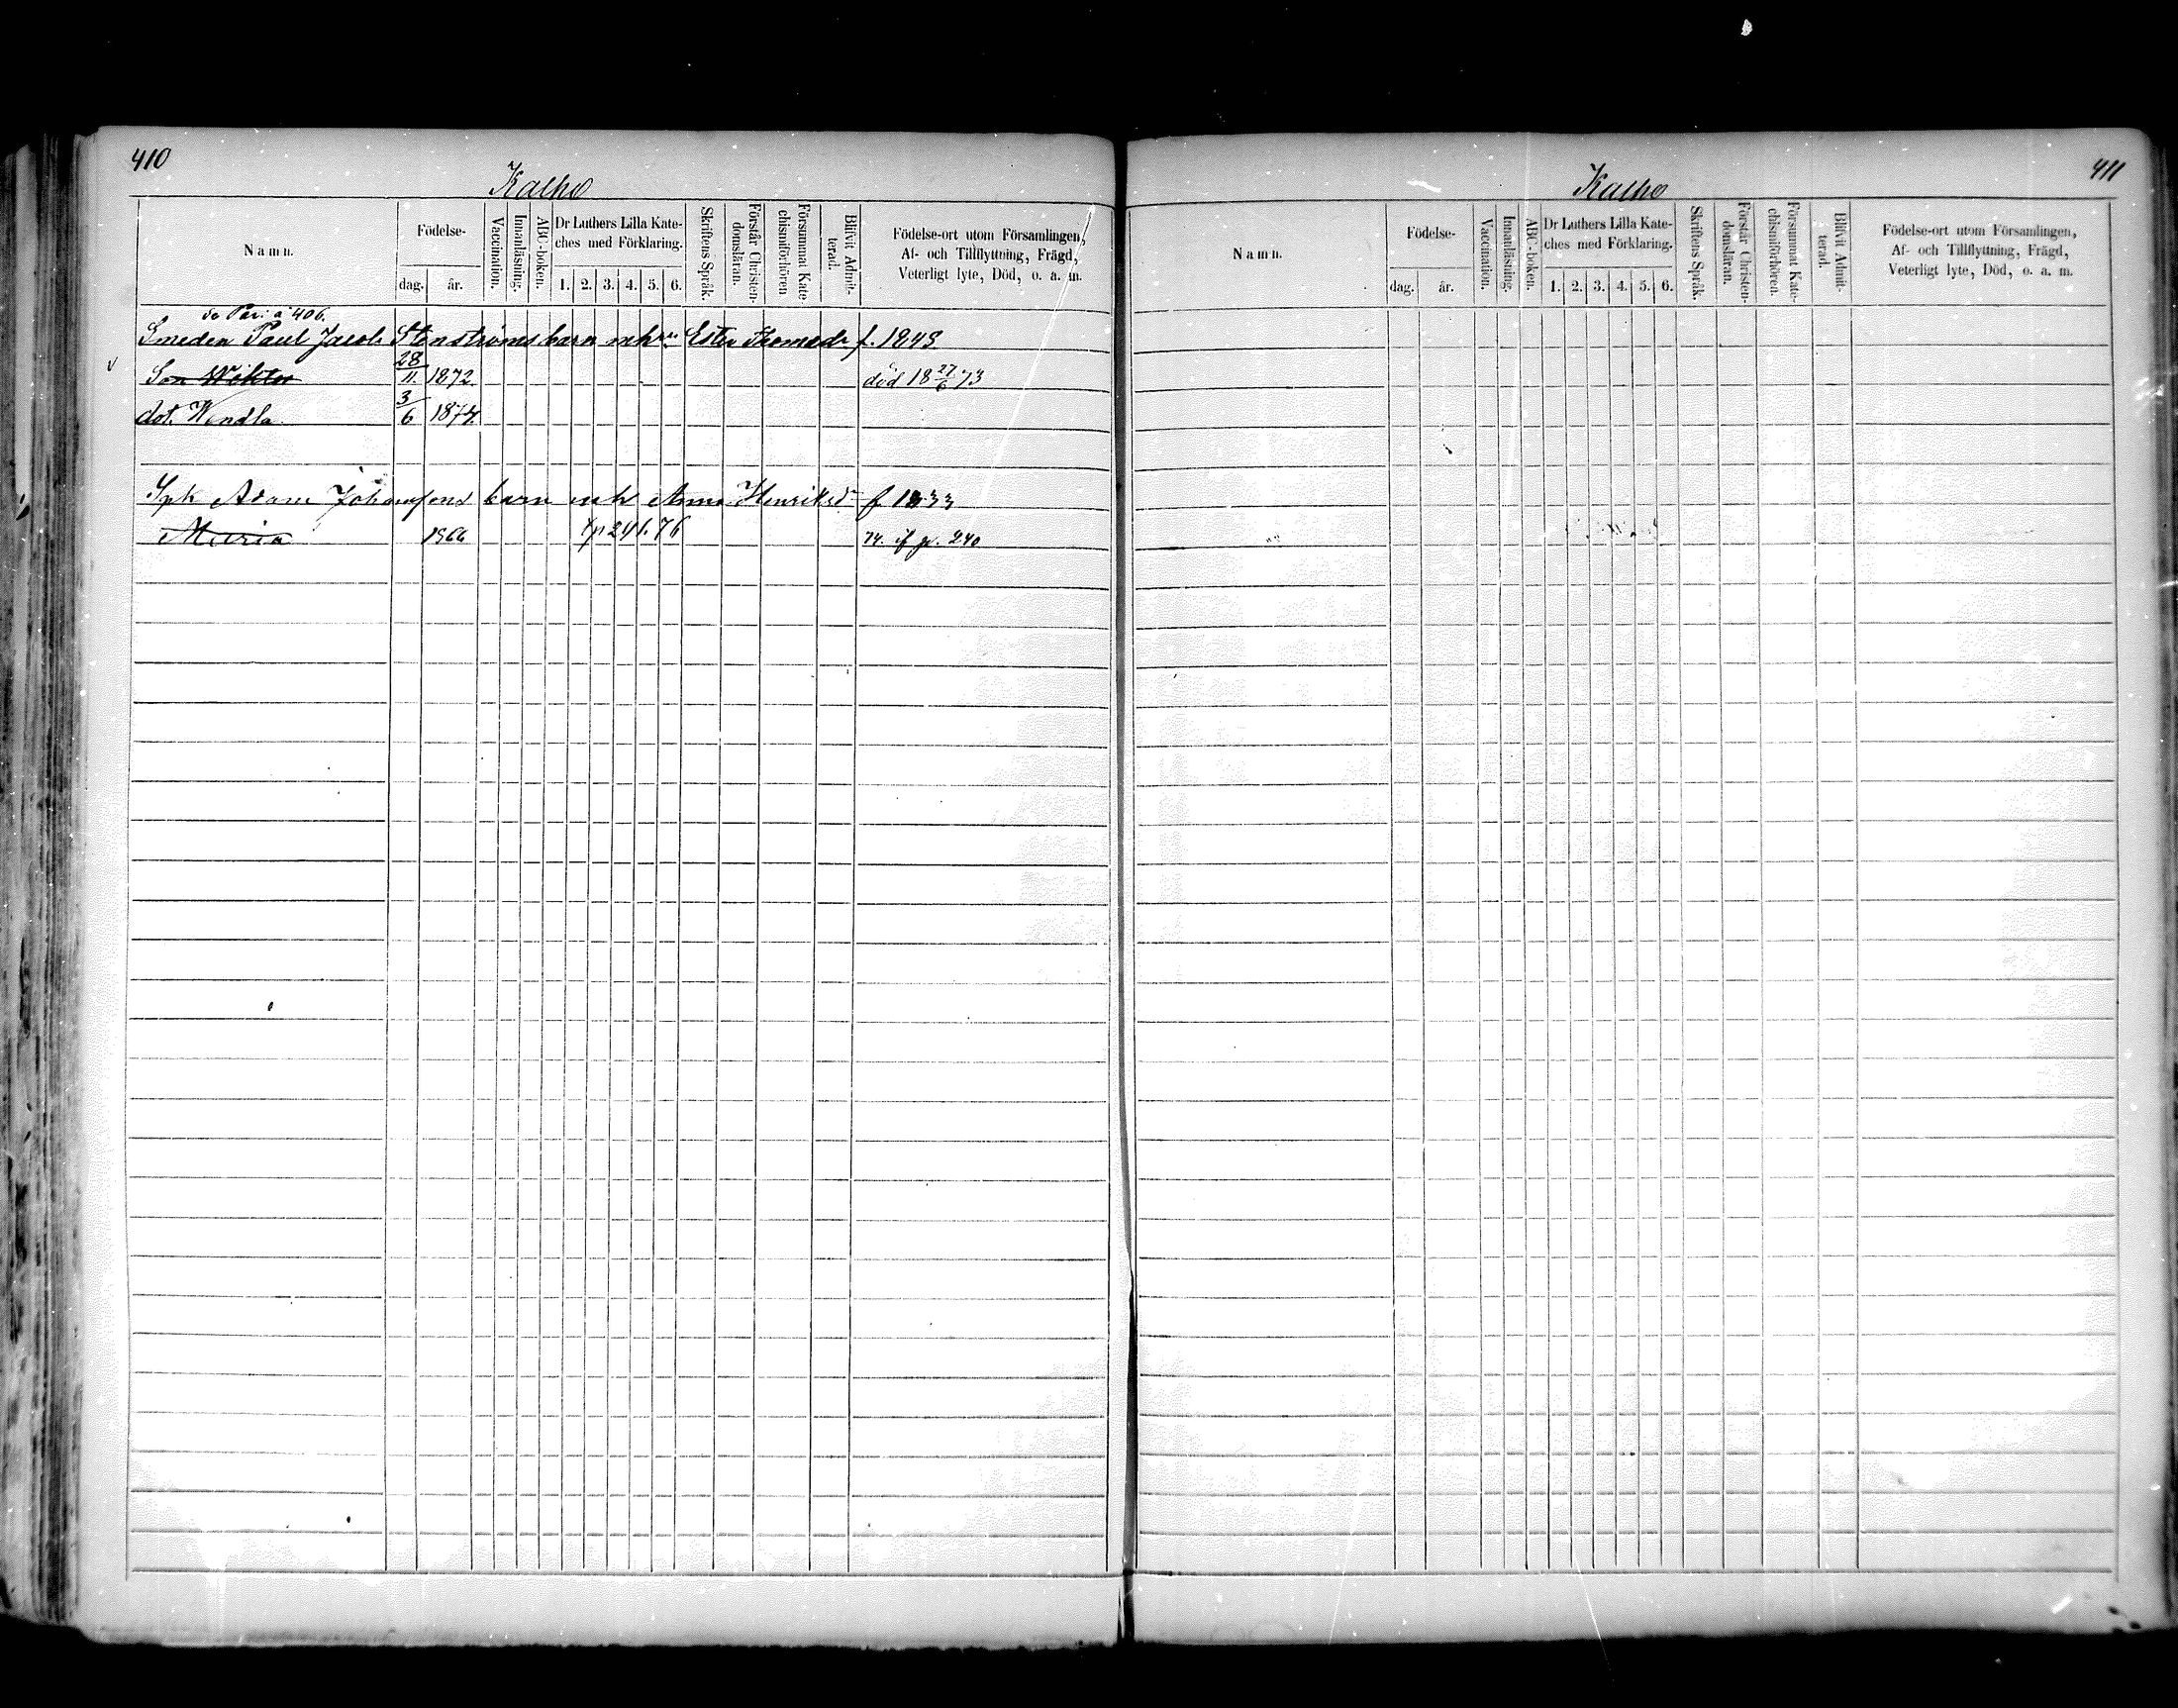 410
Kalho
Namn.
Födelse-
dag. år.
Vaccination.
Innanläsning.
ABC-boken.
Dr Luthers Lilla Kate-
ches med Förklaring.
1. 2. 3. 4. 5. 6.
Skriftens Språk.
Förstår Christen-
domsläran.
Försummat Kate-
chismiförhören
Blifvit Admit-
terad.
Födelse-ort utom Församlingen,
Af- och Tillflyttning, Frägd,
Veterligt lyte, Död, o. a. m.
406.
Smeden Paul Jacob Stenströms barn mh Ester Thomasdr f. 1849
Son Wiktor 28/11 1872. död 18 27/6 73
dot. Wendla 3/6 1874.
Sph Adam Johanssons barn mh Anna Henriksdr f 1833
Maria 1866 p 241. 76 74. if p. 240
411
Kalho
Namn.
Födelse-
dag. år.
Vaccination.
Innanläsning.
ABC-boken.
Dr Luthers Lilla Kate-
ches med Förklaring.
1. 2. 3. 4. 5. 6.
Skriftens Språk.
Förstår Christen-
domsläran.
Försummat Kate-
chismiförhören.
Blifvit Admit-
terad.
Födelse-ort utom Församlingen,
Af- och Tillflyttning, Frägd,
Veterligt lyte, Död, o. a. m.